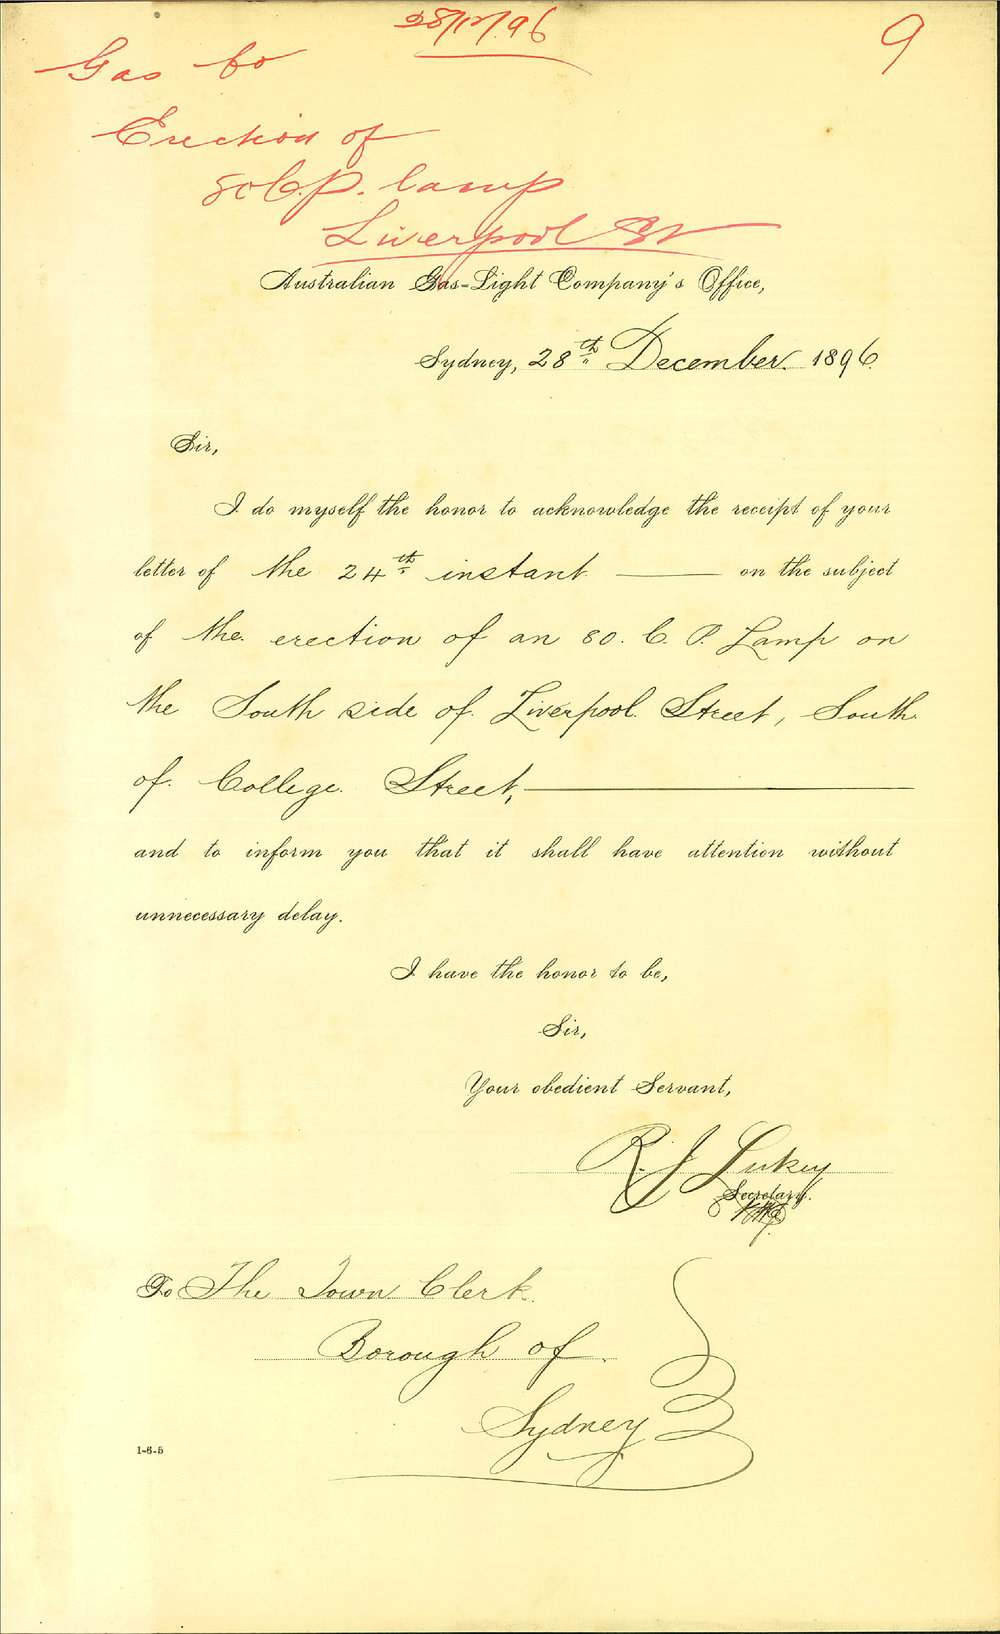 28/12/96
9
Gas Co
Erection of
80 C.P. lamp
Liverpool St
Australian Gas-Light Company's Office,
Sydney, 28th December. 1896.
Sir,
I do myself the honor to acknowledge the receipt of your
letter of the 24th instant on the subject
of the erection of an 80. C. P. Lamp on
the South side of Liverpool Street, South
of College Street,
and to inform you that it shall have attention without
unnecessary delay.
I have the honor to be,
Sir,
Your obedient Servant,
R. J. Lukey
Secretary.
To The Town Clerk.
Borough of
Sydney
1-6-5